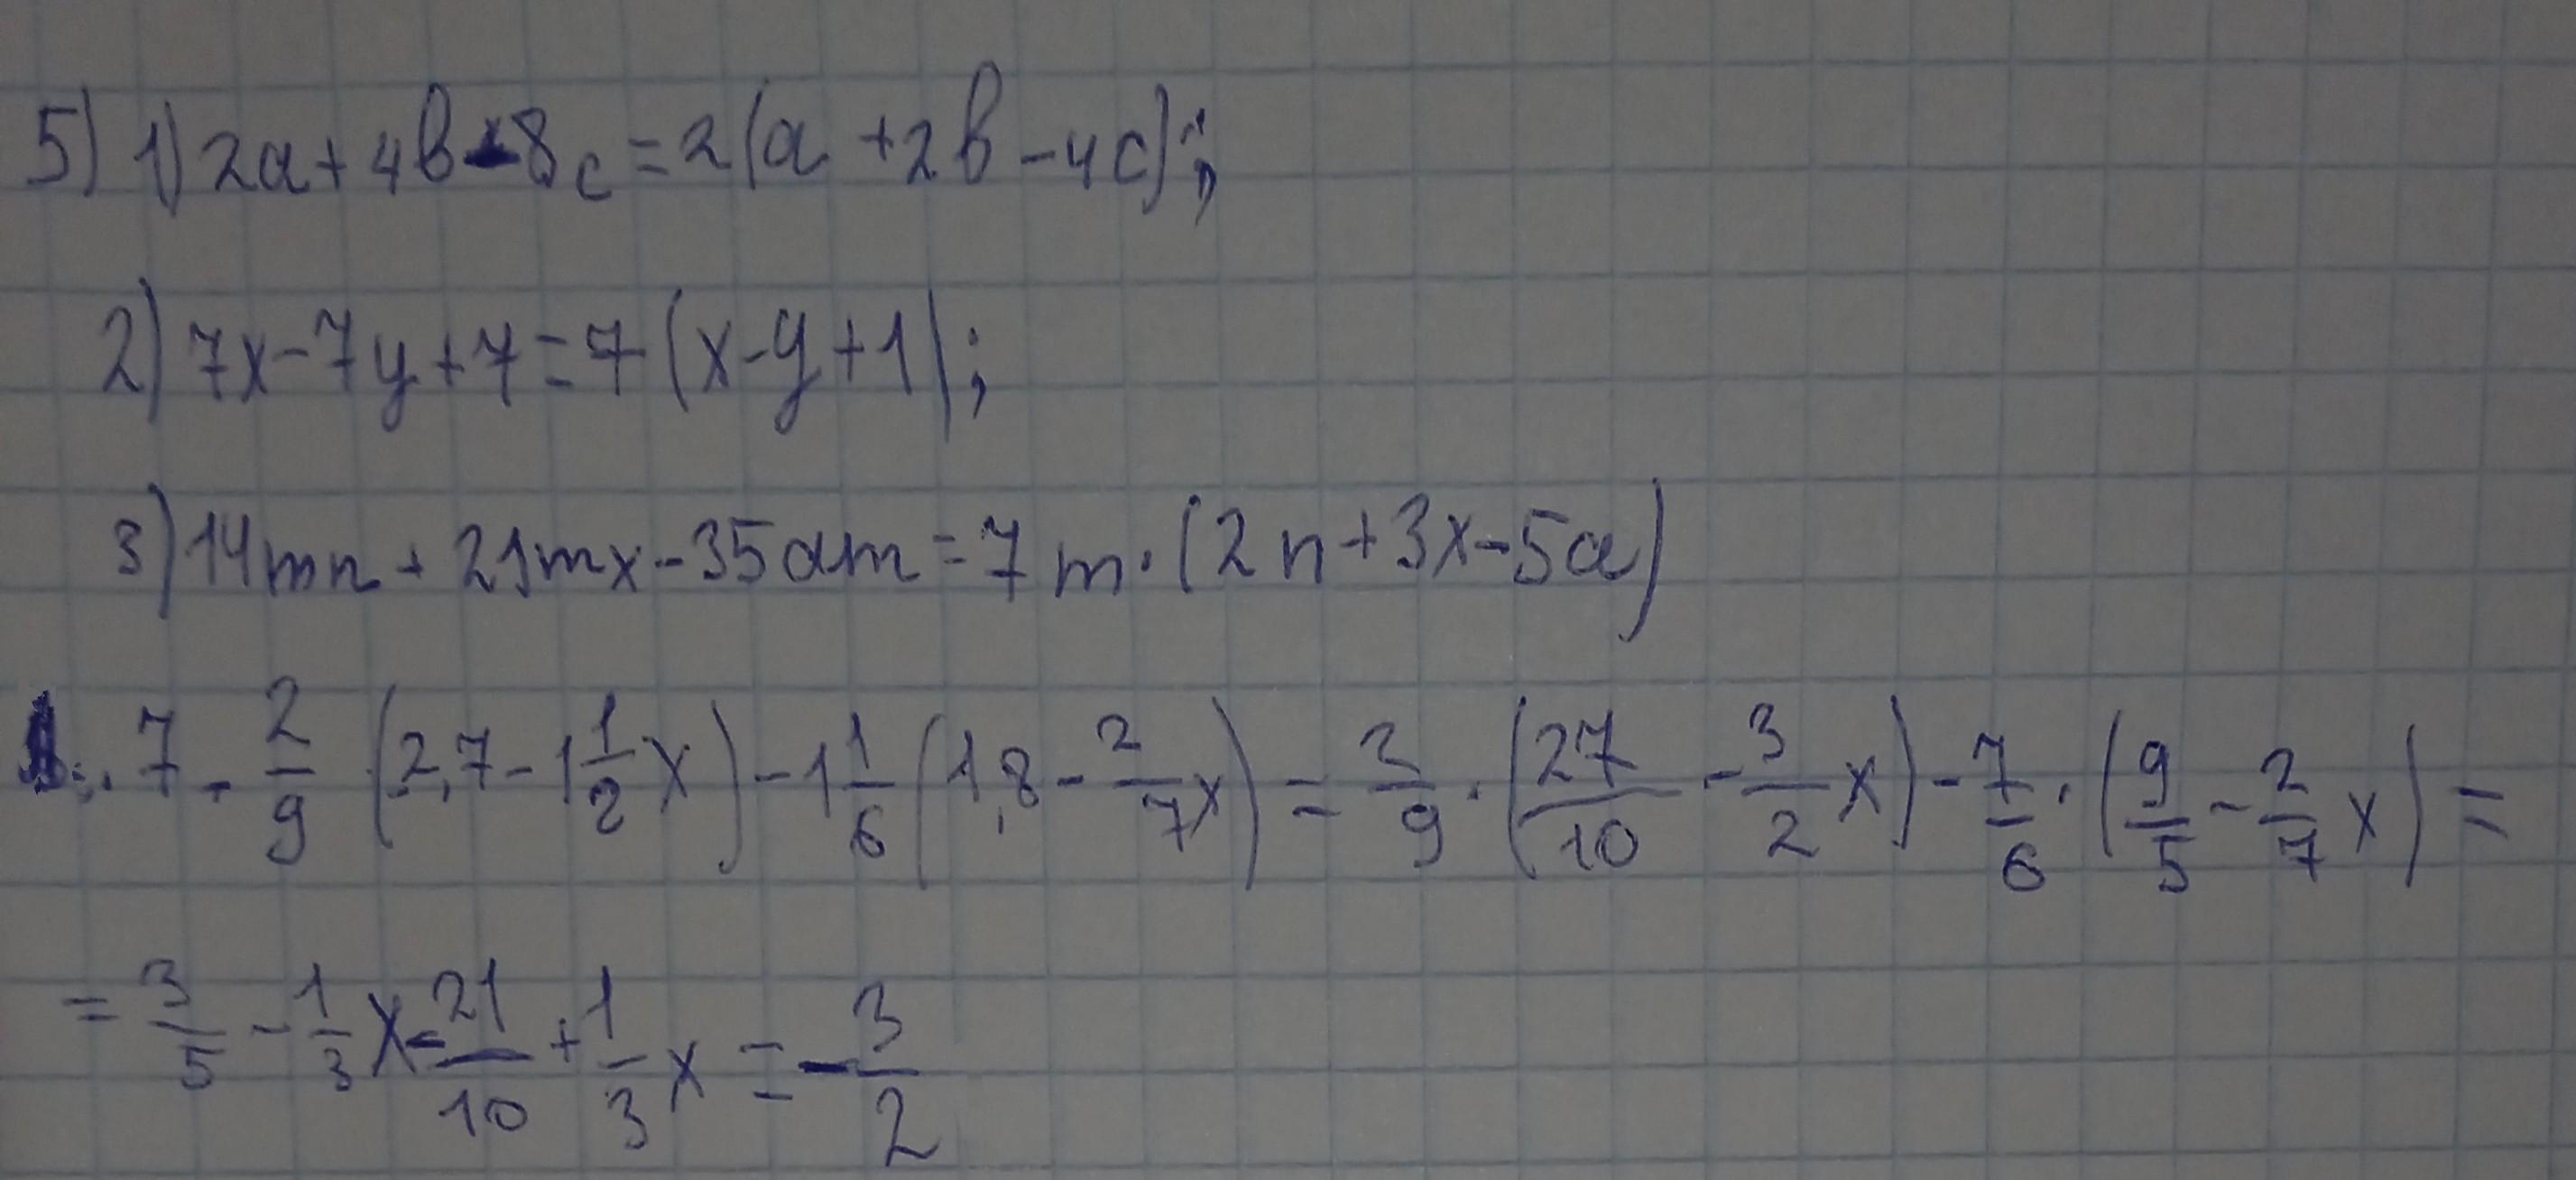 5) 1) 2a+4b-8c=2(a+2b-4c);
2) 7x-7y+7=7(x-y+1);
3) 14mn+21mx-35am=7m·(2n+3x-5a)
7. 2/9 (2,7-1 1/2 x)-1 1/6 (1,8-2/7 x)=2/9·(27/10-3/2 x)-7/6·(9/5-2/7 x)=
=3/5-1/3 x-21/10+1/3 x=-3/2